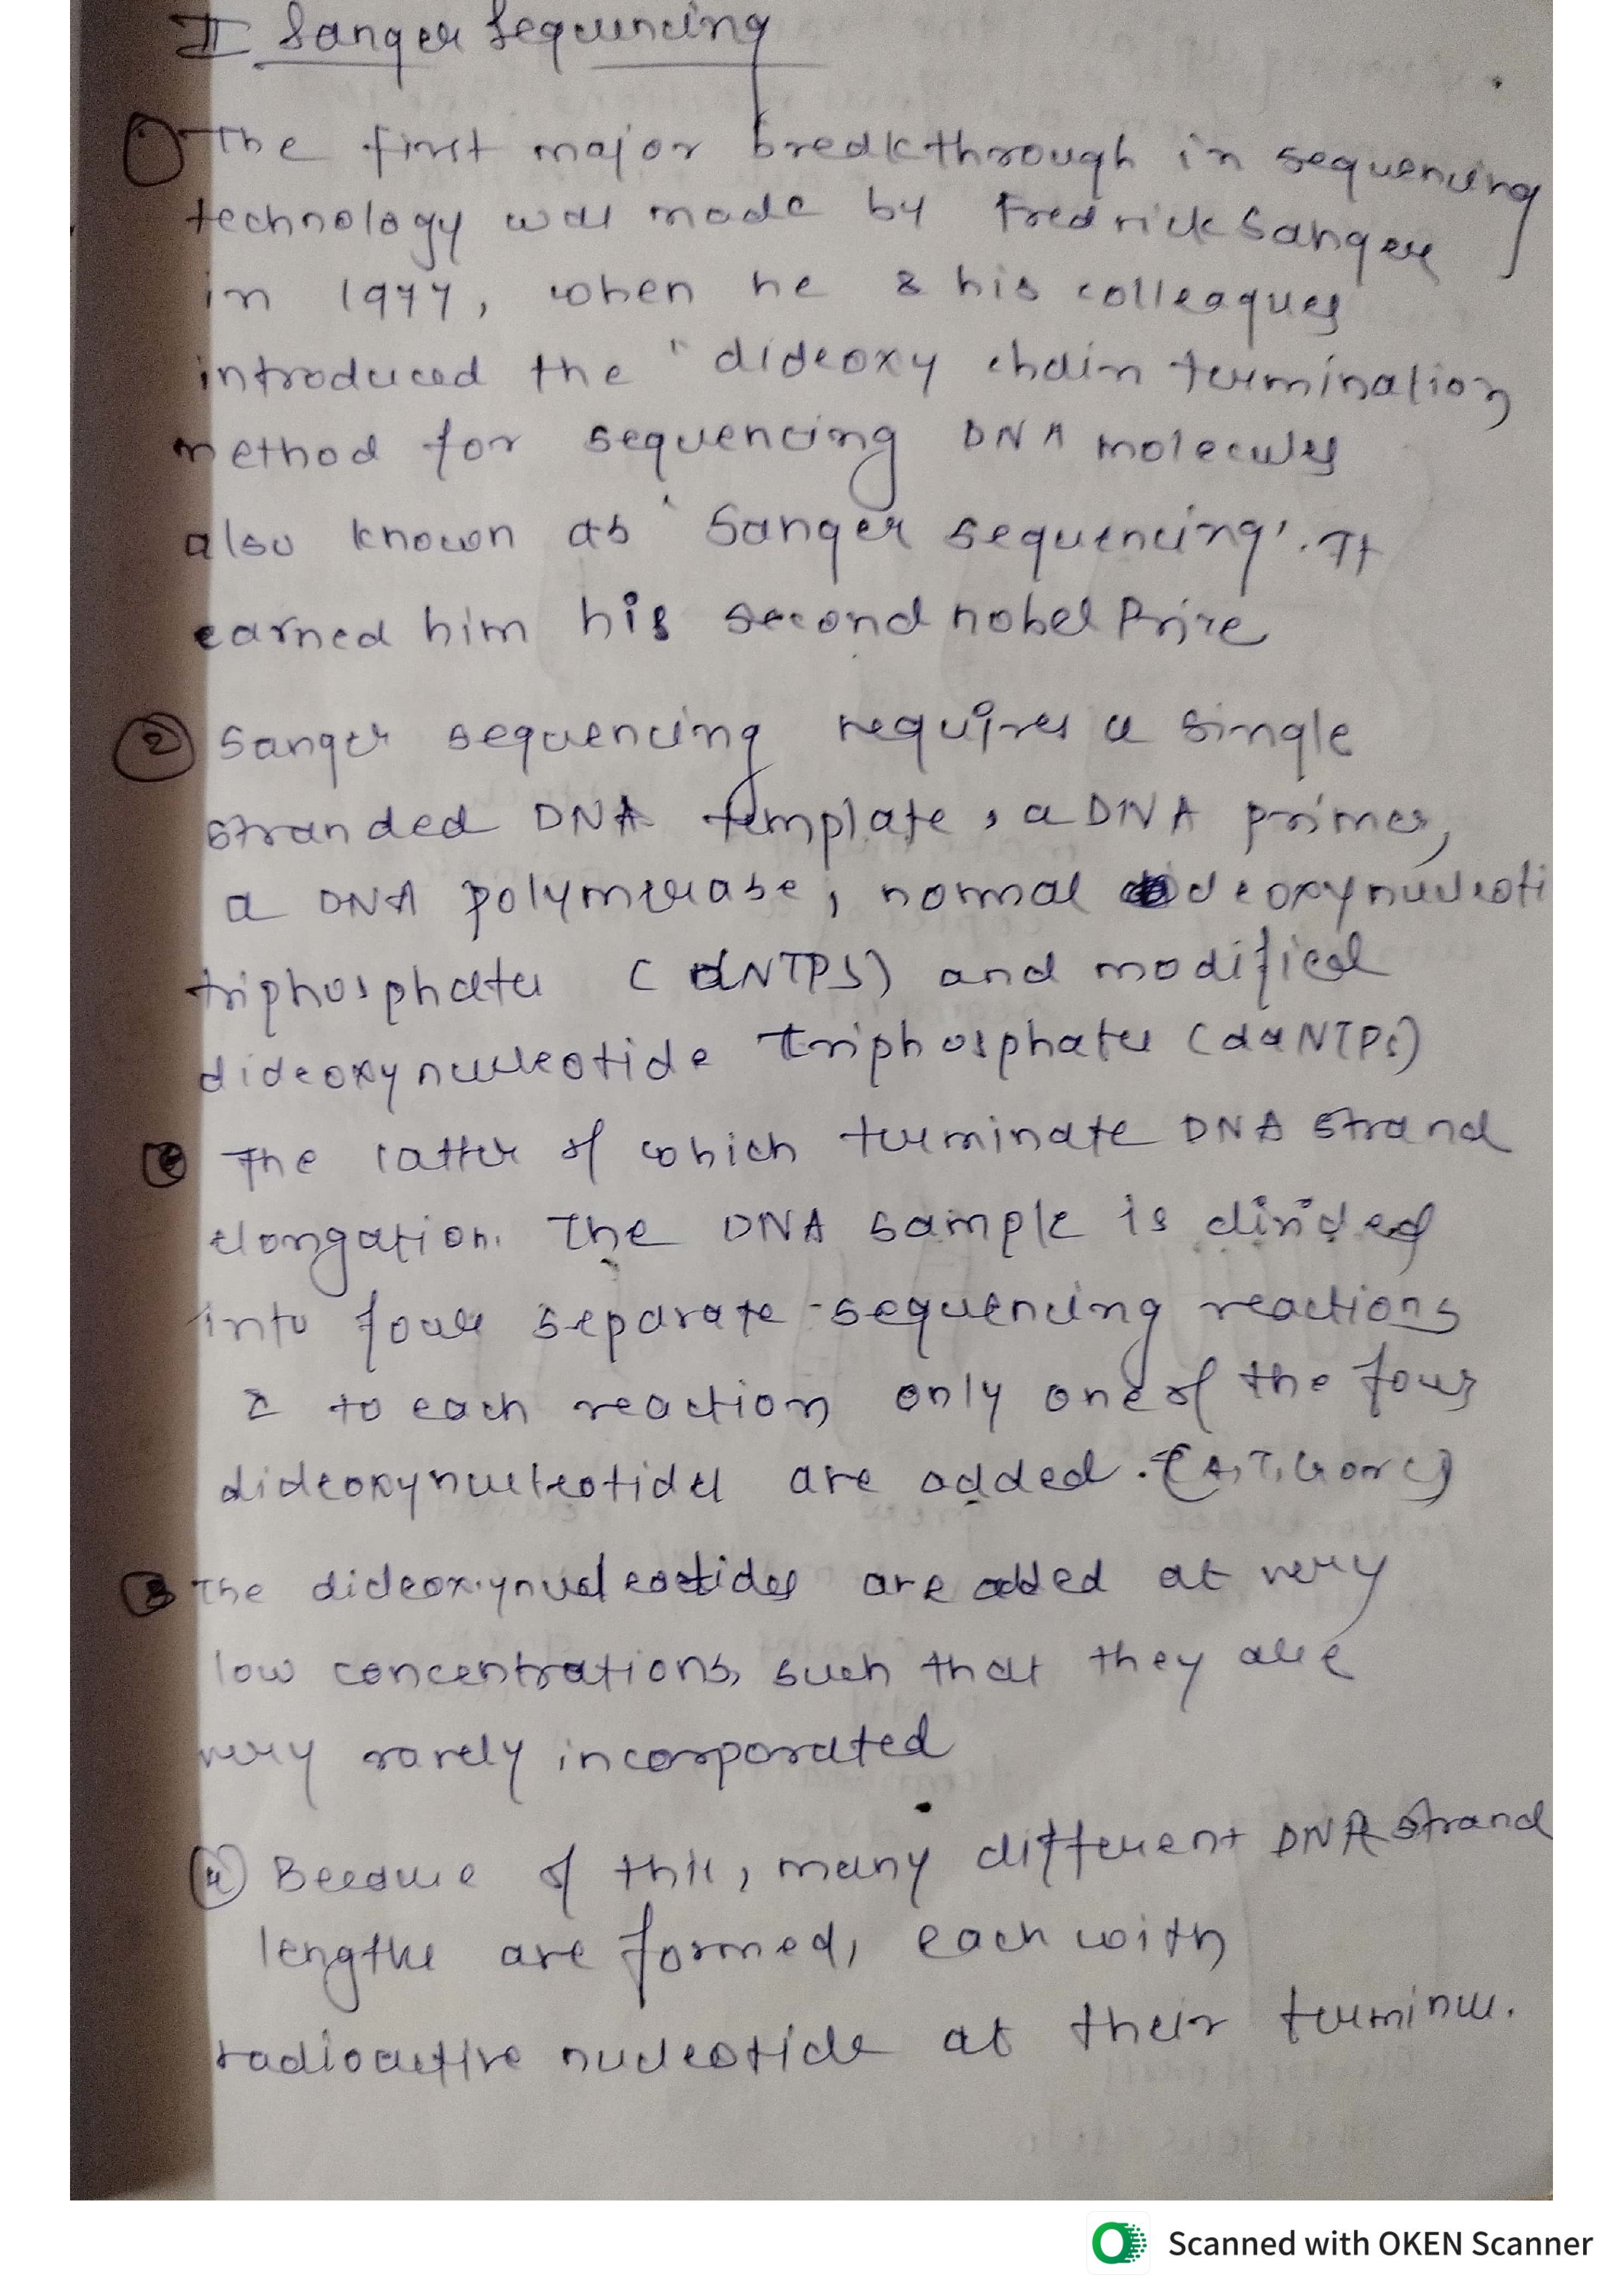 II Sanger Sequencing
① The first major breakthrough in sequencing
technology was made by Fredrick Sanger
in 1977, when he & his colleagues
introduced the ' dideoxy chain termination
method for sequencing DNA molecules
also known as 'Sanger sequencing'. It
earned him his second nobel Prize
② Sanger sequencing requires a single
stranded DNA template, a DNA primer,
a DNA polymerase, normal deoxynucleoti
triphosphates (dNTPs) and modified
dideoxynucleotide triphosphates (ddNTPs)
The latter of which terminate DNA strand
elongation. The DNA sample is divided
into four separate sequencing reactions
& to each reaction only one of the four
dideoxynucleotides are added. (A, T, G or C)
③ The dideoxynucleotides are added at very
low concentrations, such that they are
very rarely incorporated
④ Because of this, many different DNA strand
lengths are formed, each with
radioactive nucleotide at their terminus.
Scanned with OKEN Scanner